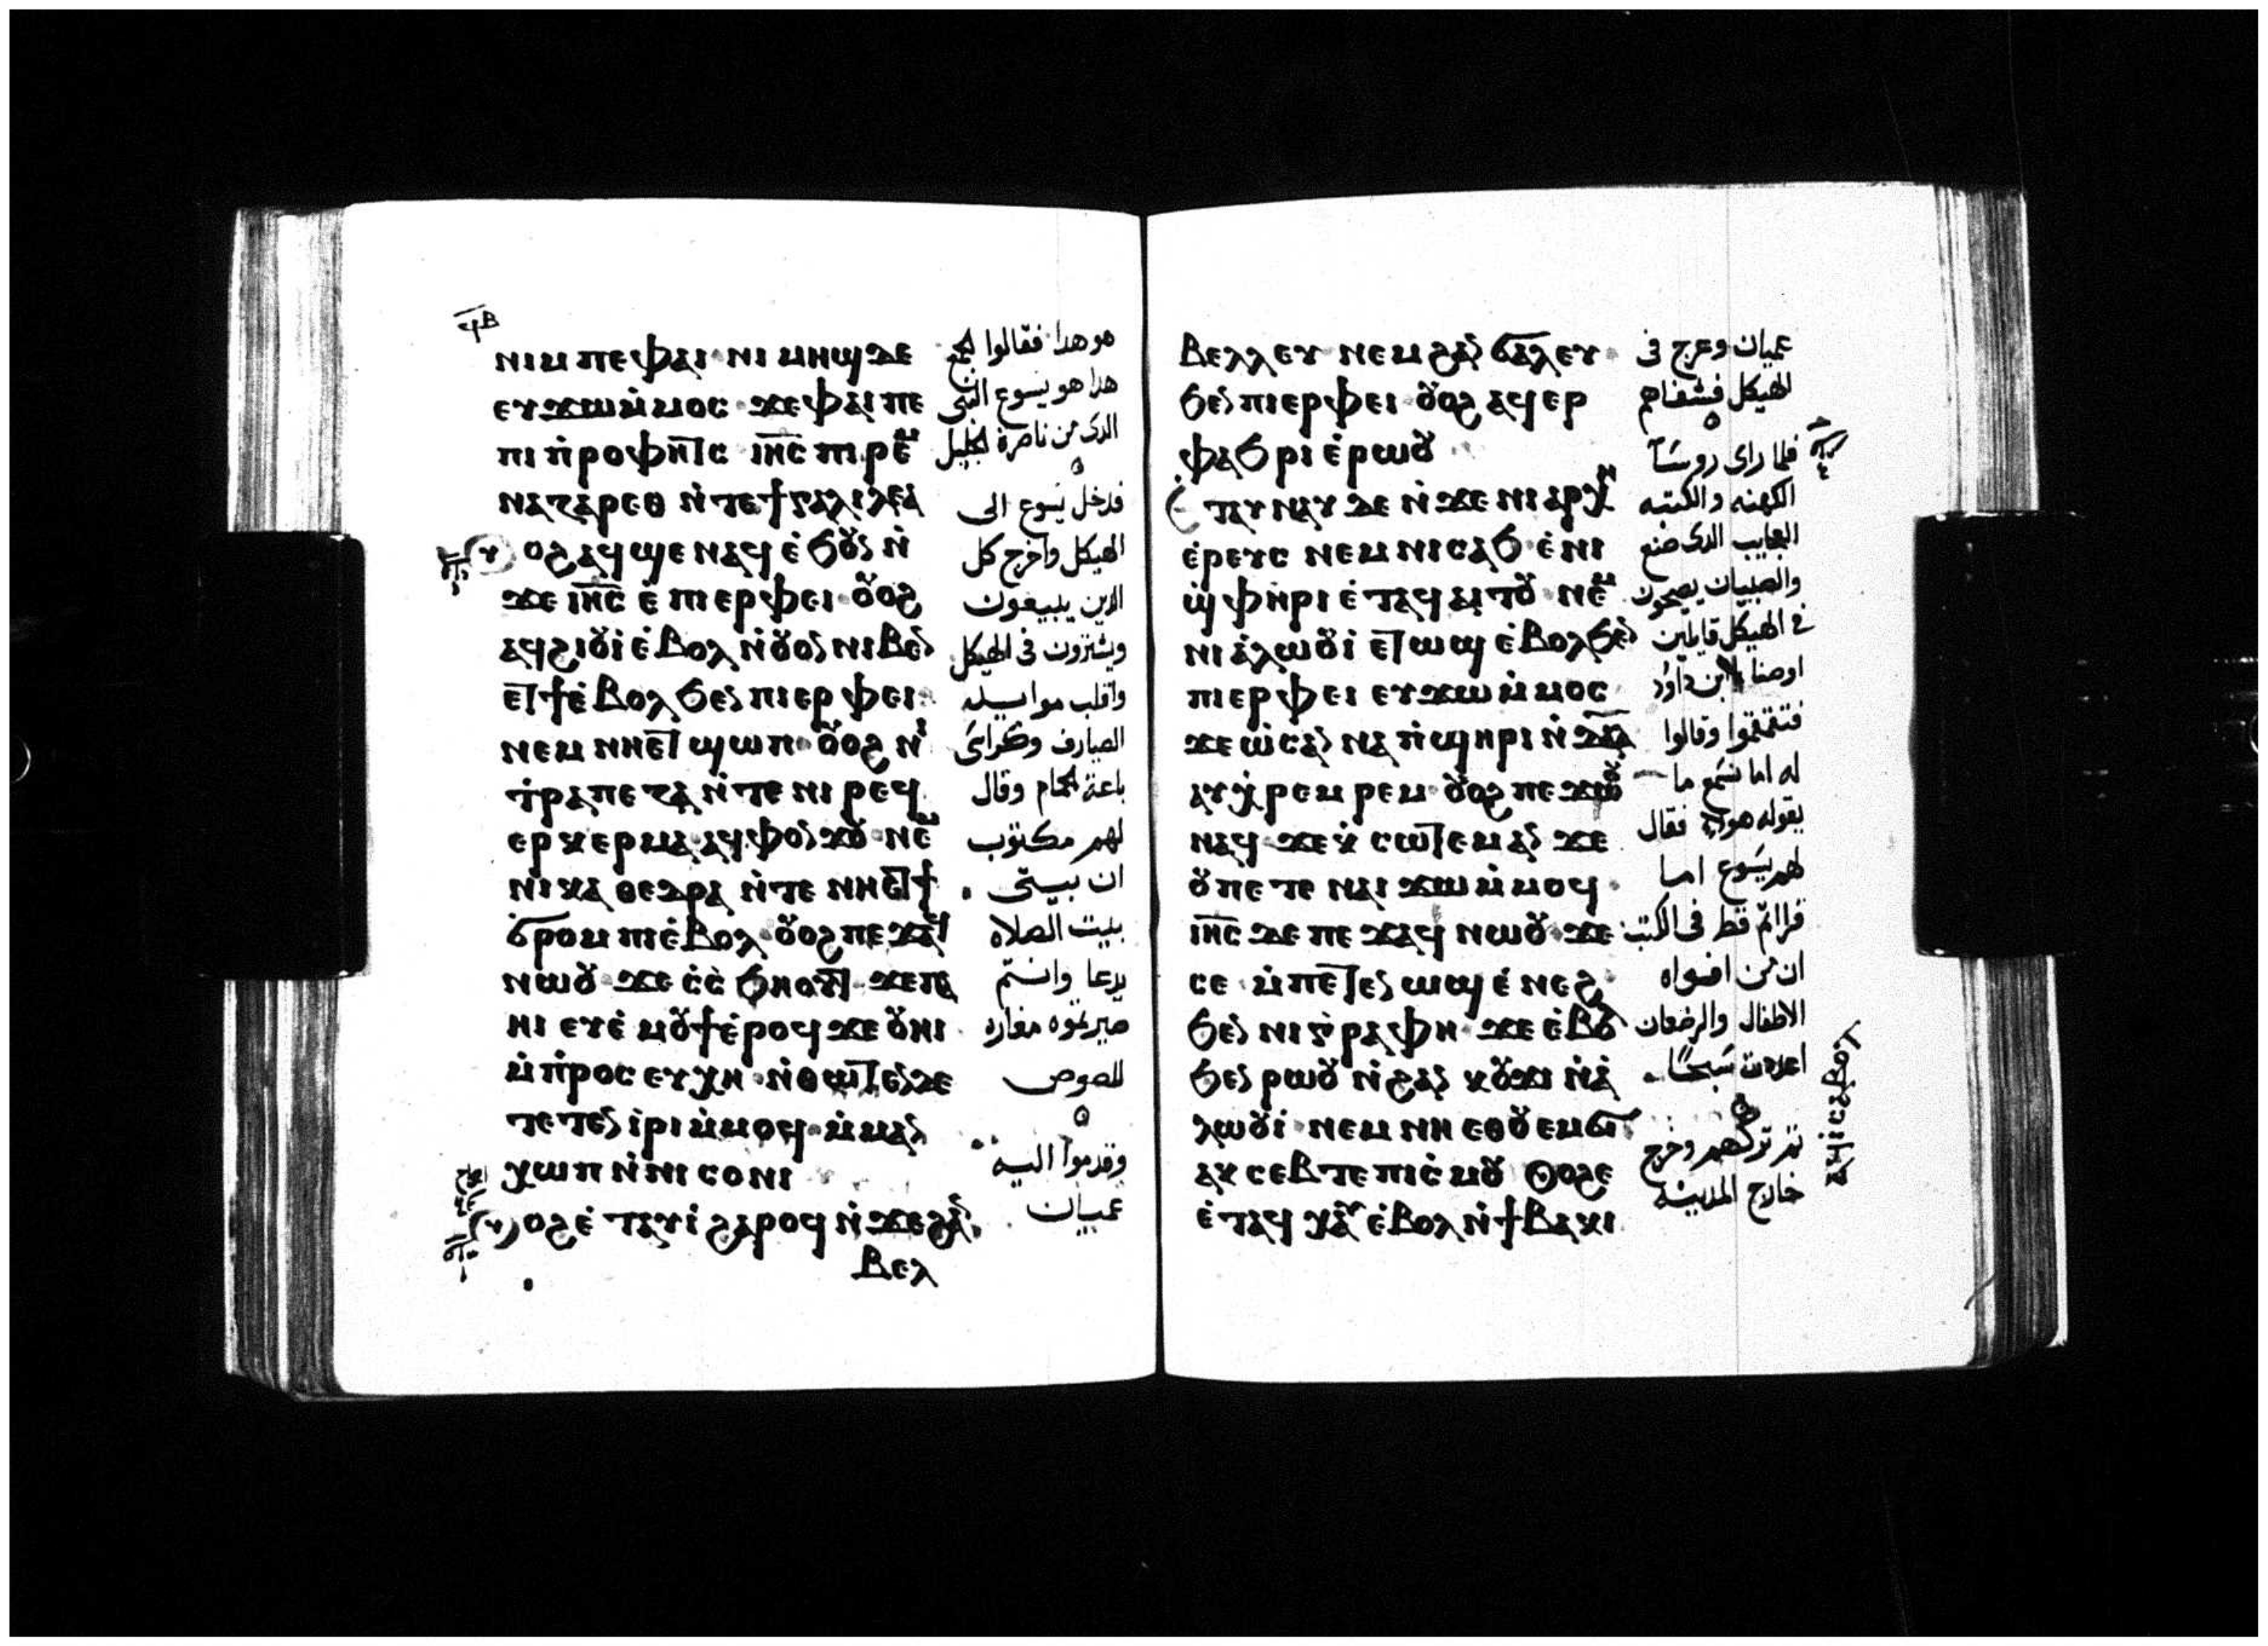 ϥⲃ
ⲛⲓⲙ ⲡⲉ ⲫⲁⲓ ⲛⲓ ⲙⲏϣ ⲇⲉ
ⲉⲩϫⲱ ⲙ̇ⲙⲟⲥ ϫⲉ ⲫⲁⲓ ⲡⲉ
ⲡⲓ ⲡ̇ⲣⲟⲫⲏⲧⲏⲥ ⲓⲏ̅ⲥ̅ ⲡⲓ ⲣⲉⲙ
ⲛⲁⲍⲁⲣⲉⲑ ⲛ̇ⲧⲉ ϯⲅⲁⲗⲓⲗⲉⲁ
ⲟⲩⲟϩ ⲁϥϣⲉ ⲛⲁϥ ⲉ̇ϧⲟⲩⲛ ⲛ̇
ϫⲉ ⲓⲏ̅ⲥ̅ ⲉ̇ ⲡⲓ ⲉⲣⲫⲉⲓ ⲟⲩⲟϩ
ⲁϥϩⲓⲟⲩⲓ̇ ⲉ̇ⲃⲟⲗ ⲛ̇ⲟⲩⲟⲛ ⲛⲓⲃⲉⲛ
ⲉⲧϯ ⲉ̇ⲃⲟⲗ ϧⲉⲛ ⲡⲓ ⲉⲣⲫⲉⲓ
ⲛⲉⲙ ⲛⲏⲉⲧϣⲱⲡ ⲟⲩⲟϩ ⲛⲓ
ⲧ̇ⲣⲁⲡⲉⲍⲁ ⲛ̇ⲧⲉ ⲛⲓ ⲣⲉϥ
ⲉⲣⲕⲉⲣⲙⲁ ⲁϥⲫⲟⲛϫⲟⲩ ⲛⲉⲙ
ⲛⲓ ⲕⲁⲑⲉⲇⲣⲁ ⲛ̇ⲧⲉ ⲛⲏⲉⲧϯ
ϭⲣⲟⲙⲡⲓ ⲉ̇ⲃⲟⲗ ⲟⲩⲟϩ ⲡⲉϫⲁϥ
ⲛⲱⲟⲩ ϫⲉ ⲥ̇ⲥ̇ϧⲏⲟⲩⲧ ϫⲉ ⲡⲁ
ⲏⲓ ⲉⲩⲉ̇ⲙⲟⲩϯ ⲉ̇ⲣⲟϥ ϫⲉ ⲟⲩⲏⲓ
ⲙ̇ⲡ̇ⲣⲟⲥⲉⲩⲭⲏ ⲛ̇ⲑⲱⲧⲉⲛ ⲇⲉ
ⲧⲉⲧⲉⲛⲓ̇ⲣⲓ ⲙ̇ⲙⲟϥ ⲙ̇ⲙⲁⲛ
ⲭⲱⲡ ⲛ̇ⲛⲓ ⲥⲟⲛⲓ
ⲟⲩⲟϩ ⲉ̇ⲧⲁⲩⲓ̇ ϩⲁⲣⲟϥ ⲛ̇ϫⲉ ϩⲁⲛ
ⲃⲉⲗ
هو هدا فقالوا الجمع
هدا هو يسوع النبى
الدى من ناصرة الجليل
فدخل يسوع الى
الهيكل واخرج كل
الدين يبيعون
ويشترون فى الهيكل
واقلب موايد
الصيارف وكراسى
باعة الحمام وقال
لهم مكتوب
ان بيتى
بيت الصلاه
يدعا وانتم
صيرتموه مغاره
للصوص
وقدموا اليه
عميان
ⲃⲉⲗⲗⲉⲩ ⲛⲉⲙ ϩⲁⲛ ϭⲁⲗⲉⲩ
ϧⲉⲛ ⲡⲓ ⲉⲣⲫⲉⲓ ⲟⲩⲟϩ ⲁϥⲉⲣ
ⲫⲁϧⲣⲓ ⲉ̇ⲣⲱⲟⲩ
ⲉⲧⲁⲩⲛⲁⲩ ⲇⲉ ⲛ̇ϫⲉ ⲛⲓ ⲁⲣⲭⲏ
ⲉ̇ⲣⲉⲩⲥ ⲛⲉⲙ ⲛⲓ ⲥⲁϧ ⲉ̇ⲛⲓ
ϣ̇ⲫⲏⲣⲓ ⲉ̇ⲧⲁϥⲁⲓⲧⲟⲩ ⲛⲉⲙ
ⲛⲓ ⲁ̇ⲗⲱⲟⲩⲓ̇ ⲉⲧⲱϣ ⲉ̇ⲃⲟⲗ ϧⲉⲛ
ⲡⲓ ⲉⲣⲫⲉⲓ ⲉⲩϫⲱ ⲙ̇ⲙⲟⲥ
ϫⲉ ⲱ̇ⲥⲁⲛⲛⲁ ⲡ̇ϣⲏⲣⲓ ⲛ̇ⲇⲁ̅ⲇ̅
ⲁⲩⲭ̇ⲣⲉⲙⲣⲉⲙ ⲟⲩⲟϩ ⲡⲉϫⲱⲟⲩ
ⲛⲁϥ ϫⲉ ⲕ̇ⲥⲱⲧⲉⲙ ⲁⲛ ϫⲉ
ⲟⲩ ⲡⲉⲧⲉ ⲛⲁⲓ ϫⲱ ⲙ̇ⲙⲟϥ
ⲓⲏ̅ⲥ̅ ⲇⲉ ⲡⲉϫⲁϥ ⲛⲱⲟⲩ ϫⲉ
ⲥⲉ ⲙ̇ⲡⲉⲧⲉⲛⲱϣ ⲉ̇ⲛⲉϩ
ϧⲉⲛ ⲛⲓ ⲅ̇ⲣⲁⲫⲏ ϫⲉ ⲉ̇ⲃⲟⲗ
ϧⲉⲛ ⲣⲱⲟⲩ ⲛ̇ϩⲁⲛ ⲕⲟⲩϫⲓ ⲛ̇ⲁ̇
ⲗⲱⲟⲩⲓ̇ ⲛⲉⲙ ⲛⲏ ⲉⲑⲟⲩⲉⲙϭⲓ
ⲁⲕⲥⲉⲃⲧⲉ ⲡⲓⲥ̇ⲙⲟⲩ ⲟⲩⲟϩ ⲉ
ⲉ̇ⲧⲁϥⲭⲁⲩ ⲉ̇ⲃⲟⲗ ⲛ̇ϯⲃⲁⲕⲓ
ⲁϥⲓ̇ ⲥⲁⲃⲟⲗ
عميان وعرج فى
الهيكل فشفاهم
فلما راى روسا
الكهنه والكتبه
العجايب الدى صنع
والصبيان يصيحون
فى الهيكل قايلين
اوصنا لابن داود
فتقمقموا وقالوا
له اما تسمع ما
يقوله هولا فقال
لهم يسوع اما
قراتم قط فى الكتب
ان من افواه
الاطفال والرضعان
اعددت سبحًا
ثم تركهم وخرج
خارج المدينه